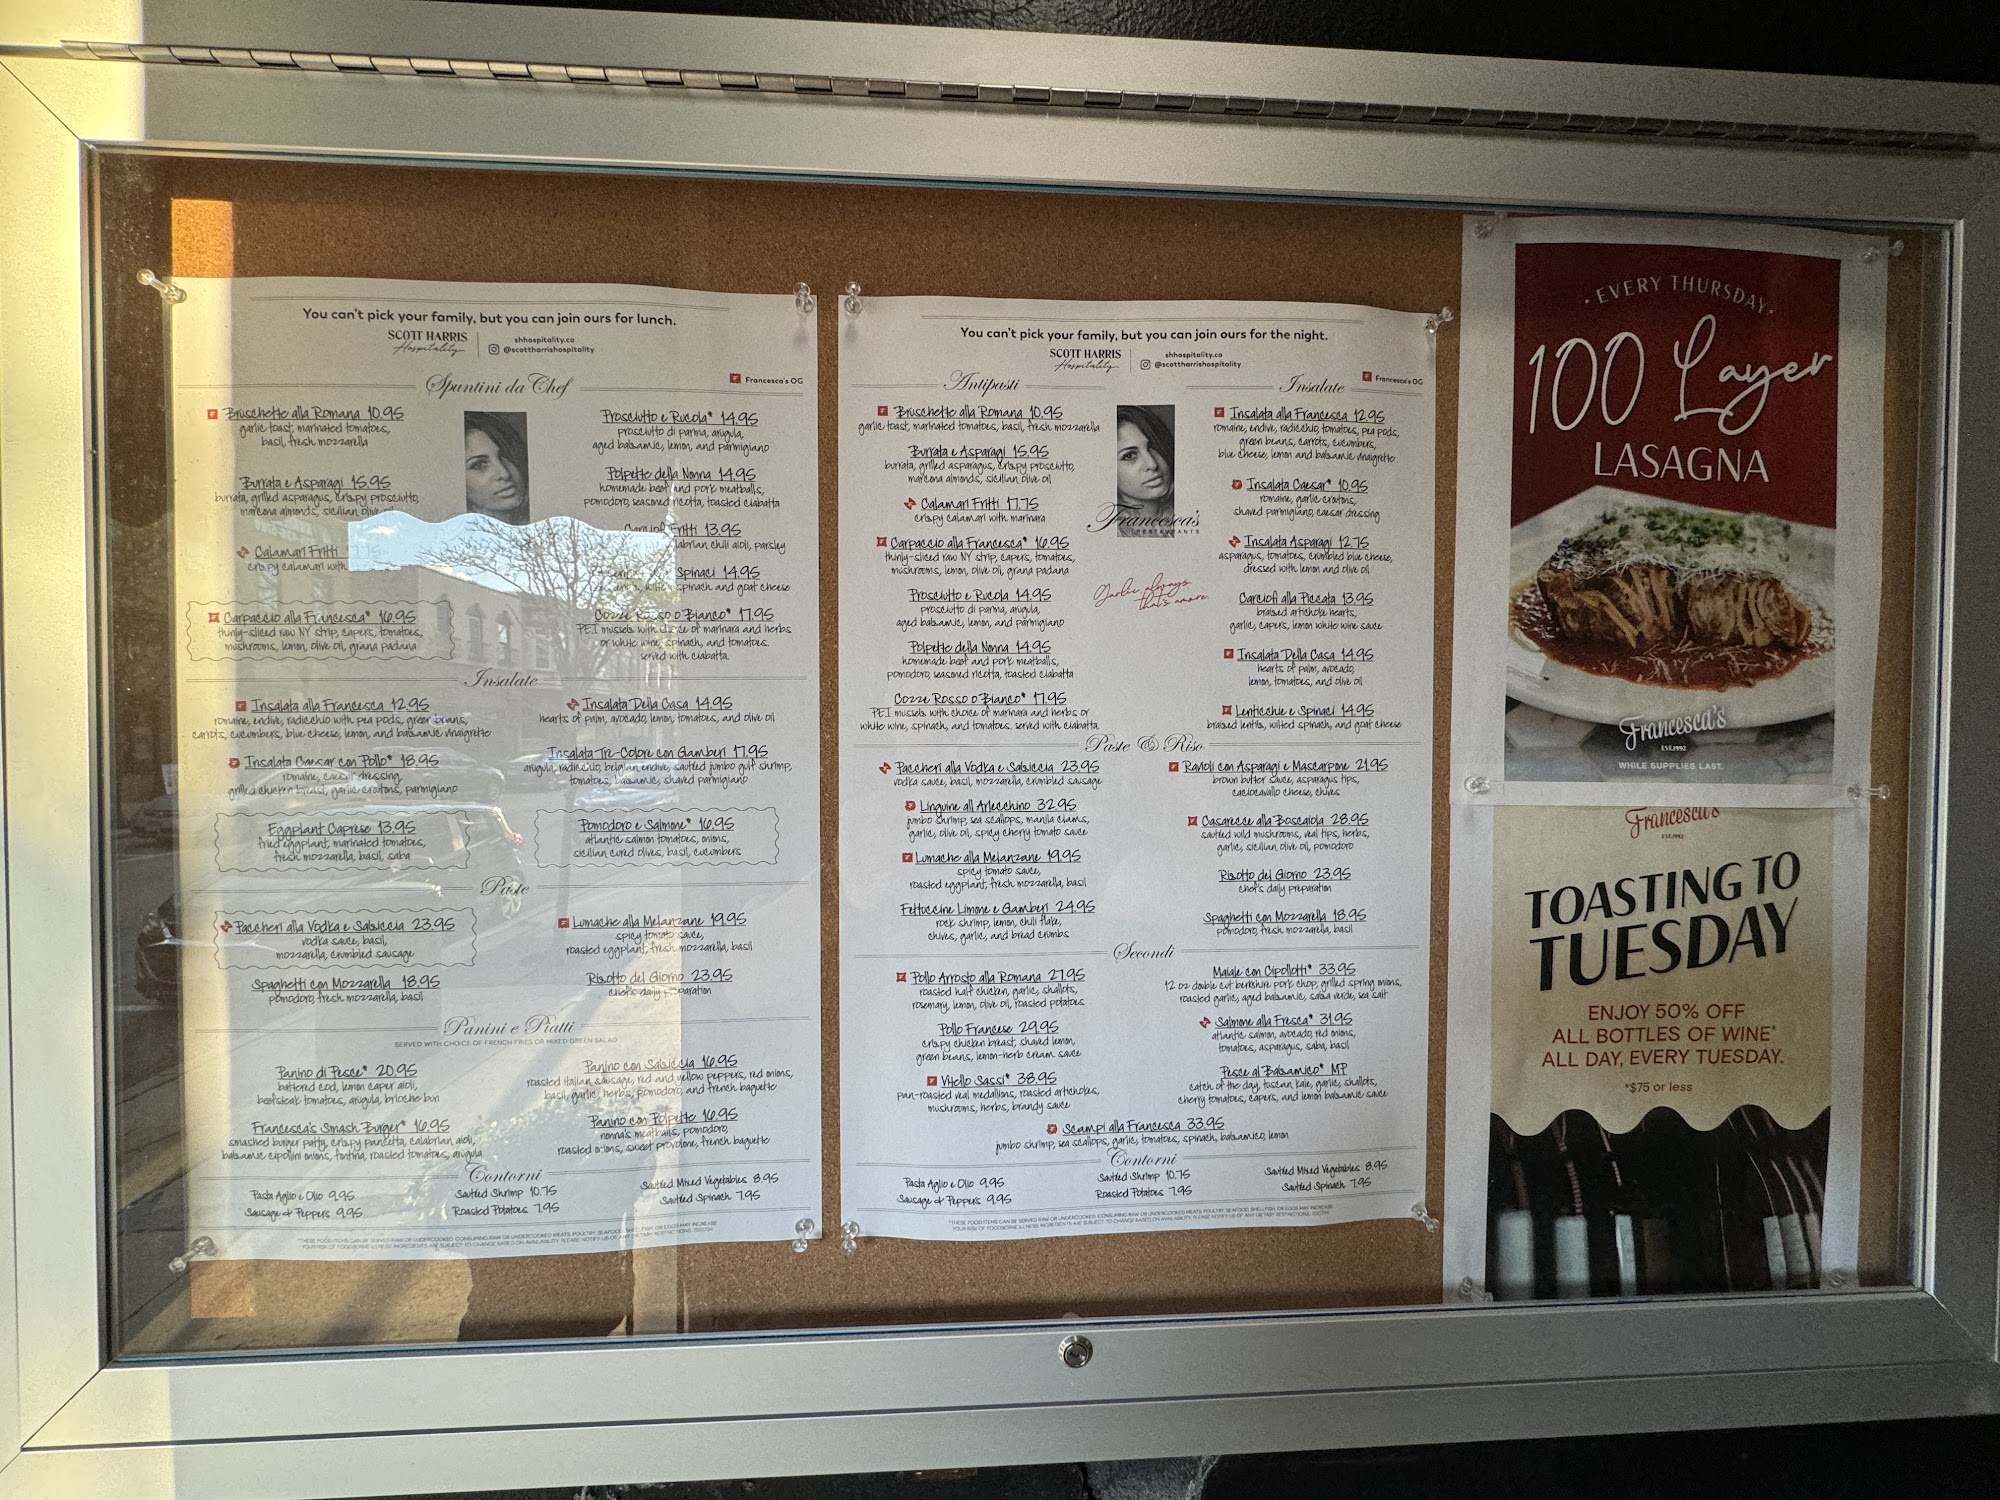 You can't pick your family, but you can join ours for lunch.
SCOTT HARRIS
Hospitality
shhospitality.co
@scottharrishospitality
Spuntini da Chef
Francesca's OG
Bruschette alla Romana 10.95
garlic toast, marinated tomatoes,
basil, fresh mozzarella
Burrata e Asparagi 15.95
burrata, grilled asparagus, crispy prosciutto,
marcona almonds, sicilian olive oil
Calamari Fritti 17.75
crispy calamari with
Carpaccio alla Francesca* 16.95
thinly-sliced raw NY strip, capers, tomatoes,
mushrooms, lemon, olive oil, grana padana
Prosciutto e Rucola* 14.95
prosciutto di parma, arugula,
aged balsamic, lemon, and parmigiano
Polpette della Nonna 14.95
homemade beef and pork meatballs,
pomodoro, seasoned ricotta, toasted ciabatta
Carciofi Fritti 13.95
calabrian chili aioli, parsley
Spinaci 14.95
spinach and goat cheese
Cozze Rosso o Bianco* 17.95
PEI mussels with choice of marinara and herbs
or white wine, spinach, and tomatoes.
served with ciabatta.
Insalate
Insalata alla Francesca 12.95
romaine, endive, radicchio with pea pods, green beans,
carrots, cucumbers, blue cheese, lemon, and balsamic vinaigrette
Insalata Caesar con Pollo* 18.95
romaine, caesar dressing,
grilled chicken breast, garlic croutons, parmigiano
Eggplant Caprese 13.95
fried eggplant, marinated tomatoes,
fresh mozzarella, basil, saba
Insalata Della Casa 14.95
hearts of palm, avocado, lemon, tomatoes, and olive oil
Insalata Tre-Colore con Gamberi 17.95
arugula, radicchio, belgian endive, sautéed jumbo gulf shrimp,
tomatoes, balsamic, shaved parmigiano
Pomodoro e Salmone* 16.95
atlantic salmon tomatoes, onions,
sicilian cured olives, basil, cucumbers
Paste
Paccheri alla Vodka e Salsiccia 23.95
vodka sauce, basil,
mozzarella, crumbled sausage
Spaghetti con Mozzarella 18.95
pomodoro, fresh mozzarella, basil
Lumache alla Melanzane 19.95
spicy tomato sauce,
roasted eggplant, fresh mozzarella, basil
Risotto del Giorno 23.95
chef's daily preparation
Panini e Piatti
SERVED WITH CHOICE OF FRENCH FRIES OR MIXED GREEN SALAD
Panino di Pesce* 20.95
battered cod, lemon caper aioli,
beefsteak tomatoes, arugula, brioche bun
Francesca's Smash Burger* 16.95
smashed burger patty, crispy pancetta, calabrian aioli,
balsamic cipollini onions, fontina, roasted tomatoes, arugula
Panino con Salsiccia 16.95
roasted italian sausage, red and yellow peppers, red onions,
basil, garlic, herbs, pomodoro, and french baguette
Panino con Polpette 16.95
nonna's meatballs, pomodoro,
roasted onions, sweet provolone, french baguette
Contorni
Pasta Aglio e Olio 9.95
Sausage & Peppers 9.95
Sautéed Shrimp 10.75
Roasted Potatoes 7.95
Sautéed Mixed Vegetables 8.95
Sautéed Spinach 7.95
*THESE FOOD ITEMS CAN BE SERVED RAW OR UNDERCOOKED. CONSUMING RAW OR UNDERCOOKED MEATS, POULTRY, SEAFOOD, SHELLFISH, OR EGGS MAY INCREASE
YOUR RISK OF FOODBORNE ILLNESS. INGREDIENTS ARE SUBJECT TO CHANGE BASED ON AVAILABILITY. PLEASE NOTIFY US OF ANY DIETARY RESTRICTIONS.
You can't pick your family, but you can join ours for the night.
SCOTT HARRIS
Hospitality
shhospitality.co
@scottharrishospitality
Francesca's OG
Antipasti
Bruschette alla Romana 10.95
garlic toast, marinated tomatoes, basil, fresh mozzarella
Burrata e Asparagi 15.95
burrata, grilled asparagus, crispy prosciutto,
marcona almonds, sicilian olive oil
Calamari Fritti 17.75
crispy calamari with marinara
Carpaccio alla Francesca* 16.95
thinly-sliced raw NY strip, capers, tomatoes,
mushrooms, lemon, olive oil, grana padana
Prosciutto e Rucola 14.95
prosciutto di parma, arugula,
aged balsamic, lemon, and parmigiano
Polpette della Nonna 14.95
homemade beef and pork meatballs,
pomodoro, seasoned ricotta, toasted ciabatta
Cozze Rosso o Bianco* 17.95
PEI mussels with choice of marinara and herbs or
white wine, spinach, and tomatoes. served with ciabatta.
Francesca's
RESTAURANTS
Garlic, always
that's amore.
Insalate
Insalata alla Francesca 12.95
romaine, endive, radicchio, tomatoes, pea pods,
green beans, carrots, cucumbers,
blue cheese, lemon and balsamic vinaigrette
Insalata Caesar* 10.95
romaine, garlic croutons,
shaved parmigiano, caesar dressing
Insalata Asparagi 12.75
asparagus, tomatoes, crumbled blue cheese,
dressed with lemon and olive oil
Carciofi alla Piccata 13.95
braised artichoke hearts,
garlic, capers, lemon white wine sauce
Insalata Della Casa 14.95
hearts of palm, avocado,
lemon, tomatoes, and olive oil
Lenticchie e Spinaci 14.95
braised lentils, wilted spinach, and goat cheese
Paste & Riso
Paccheri alla Vodka e Salsiccia 23.95
vodka sauce, basil, mozzarella, crumbled sausage
Linguine all Arlecchino 32.95
jumbo shrimp, sea scallops, manila clams,
garlic, olive oil, spicy cherry tomato sauce
Lumache alla Melanzane 19.95
spicy tomato sauce,
roasted eggplant, fresh mozzarella, basil
Fettuccine Limone e Gamberi 24.95
rock shrimp, lemon, chili flake,
chives, garlic, and bread crumbs
Ravioli con Asparagi e Mascarpone 21.95
brown butter sauce, asparagus tips,
caciocavallo cheese, chives
Casarecce alla Boscaiola 28.95
sautéed wild mushrooms, veal tips, herbs,
garlic, sicilian olive oil, pomodoro
Risotto del Giorno 23.95
chef's daily preparation
Spaghetti con Mozzarella 18.95
pomodoro, fresh mozzarella, basil
Secondi
Pollo Arrosto alla Romana 27.95
roasted half chicken, garlic, shallots,
rosemary, lemon, olive oil, roasted potatoes
Pollo Francese 29.95
crispy chicken breast, shaved lemon,
green beans, lemon-herb cream sauce
Vitello Sassi* 38.95
pan-roasted veal medallions, roasted artichokes,
mushrooms, herbs, brandy sauce
Maiale con Cipollotti* 33.95
12 oz double cut berkshire pork chop, grilled spring onions,
roasted garlic, aged balsamic, salsa verde, sea salt
Salmone alla Fresca* 31.95
atlantic salmon, avocado, red onions,
tomatoes, asparagus, saba, basil
Pesce al Balsamico* MP
catch of the day, tuscan kale, garlic, shallots,
cherry tomatoes, capers, and lemon balsamic sauce
Scampi alla Francesca 33.95
jumbo shrimp, sea scallops, garlic, tomatoes, spinach, balsamico, lemon
Contorni
Pasta Aglio e Olio 9.95
Sausage & Peppers 9.95
Sautéed Shrimp 10.75
Roasted Potatoes 7.95
Sautéed Mixed Vegetables 8.95
Sautéed Spinach 7.95
*THESE FOOD ITEMS CAN BE SERVED RAW OR UNDERCOOKED. CONSUMING RAW OR UNDERCOOKED MEATS, POULTRY, SEAFOOD, SHELLFISH, OR EGGS MAY INCREASE
YOUR RISK OF FOODBORNE ILLNESS. INGREDIENTS ARE SUBJECT TO CHANGE BASED ON AVAILABILITY. PLEASE NOTIFY US OF ANY DIETARY RESTRICTIONS.
· EVERY THURSDAY ·
100 Layer
LASAGNA
Francesca's
EST.1992
WHILE SUPPLIES LAST.
Francesca's
EST.1992
TOASTING TO
TUESDAY
ENJOY 50% OFF
ALL BOTTLES OF WINE*
ALL DAY, EVERY TUESDAY.
*$75 or less